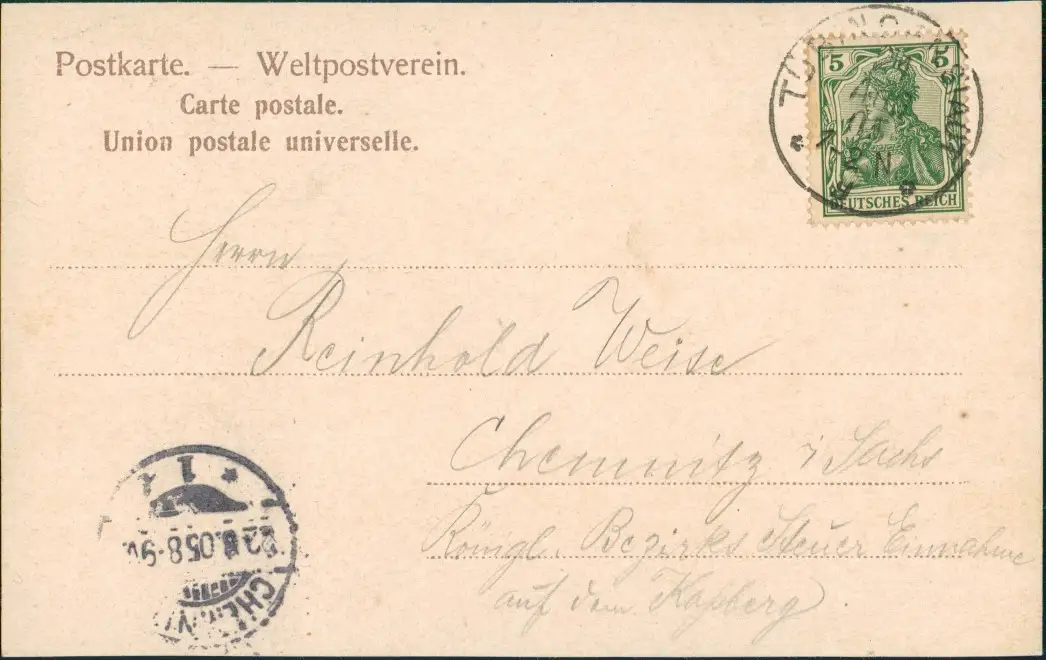 Postkarte. — Weltpostverein.
Carte postale.
Union postale universelle.
5 5
DEUTSCHES REICH
N
Herrn
Reinhold Weise
Chemnitz i Sachs
Königl. Bezirks Steuer Einnahme
auf dem Kapberg
1
.05 8-9V.
CHEMNI